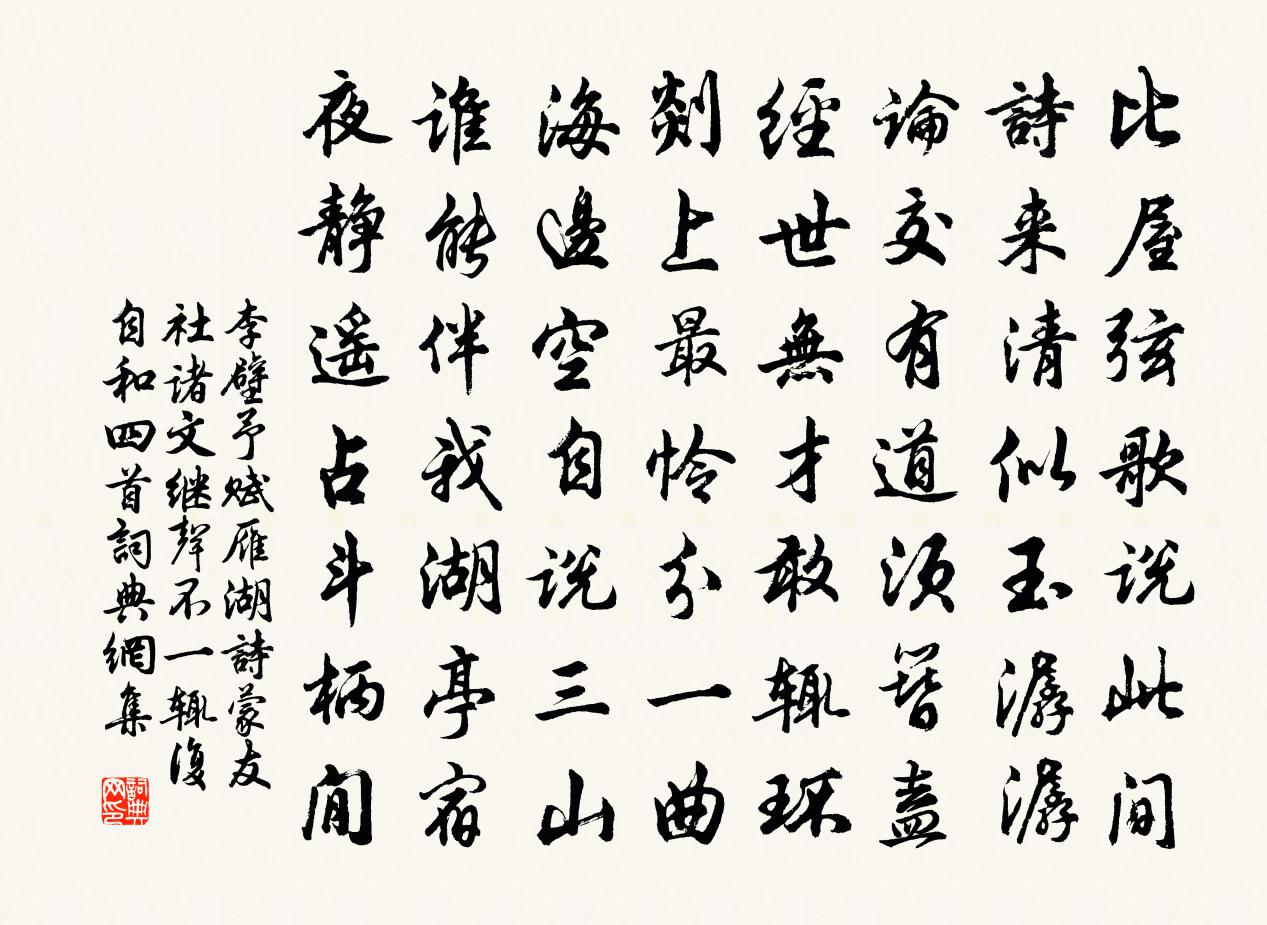 比屋弦歌说此间
詩来清似玉潺潺
论交有道须簪盍
經世無才敢辄环
剡上最怜分一曲
海邊空自说三山
谁能伴我湖亭宿
夜静遥占斗柄间
李壁予赋雁湖詩蒙友
社诸文继聲不一辄復
自和四首詞典網集
詞典网印